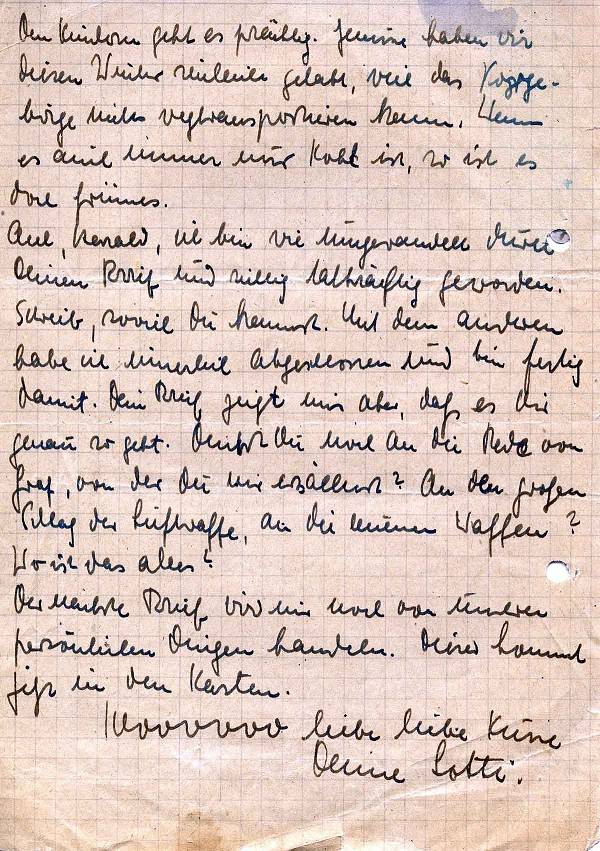 Den Kindern geht es prächtig. Gemüse haben wir
diesen Winter reichlich gehabt, weil das Vorge-
birge nichts wegtransportieren kann. Wenn
es auch immer nur Kohl ist, so ist es
doch grünes.
Ach, Harald, ich bin wie umgewandelt durch
Deinen Brief und richtig tatkräftig geworden.
Schreib, soviel Du kannst. Mit dem anderen
habe ich innerlich abgeschlossen und bin fertig
damit. Dein Brief zeigt mir aber, daß es dir
genau so geht. Denkst Du noch an die Rede von
Graf, von der Du mir erzähltest? An den großen
Schlag der Luftwaffe, an die neuen Waffen?
Wo ist das alles?
Der nächste Brief wird nur noch von unseren
persönlichen Dingen handeln. Dieser kommt
jetzt in den Kasten.
1000000 liebe liebe Küsse
Deine Lotti.